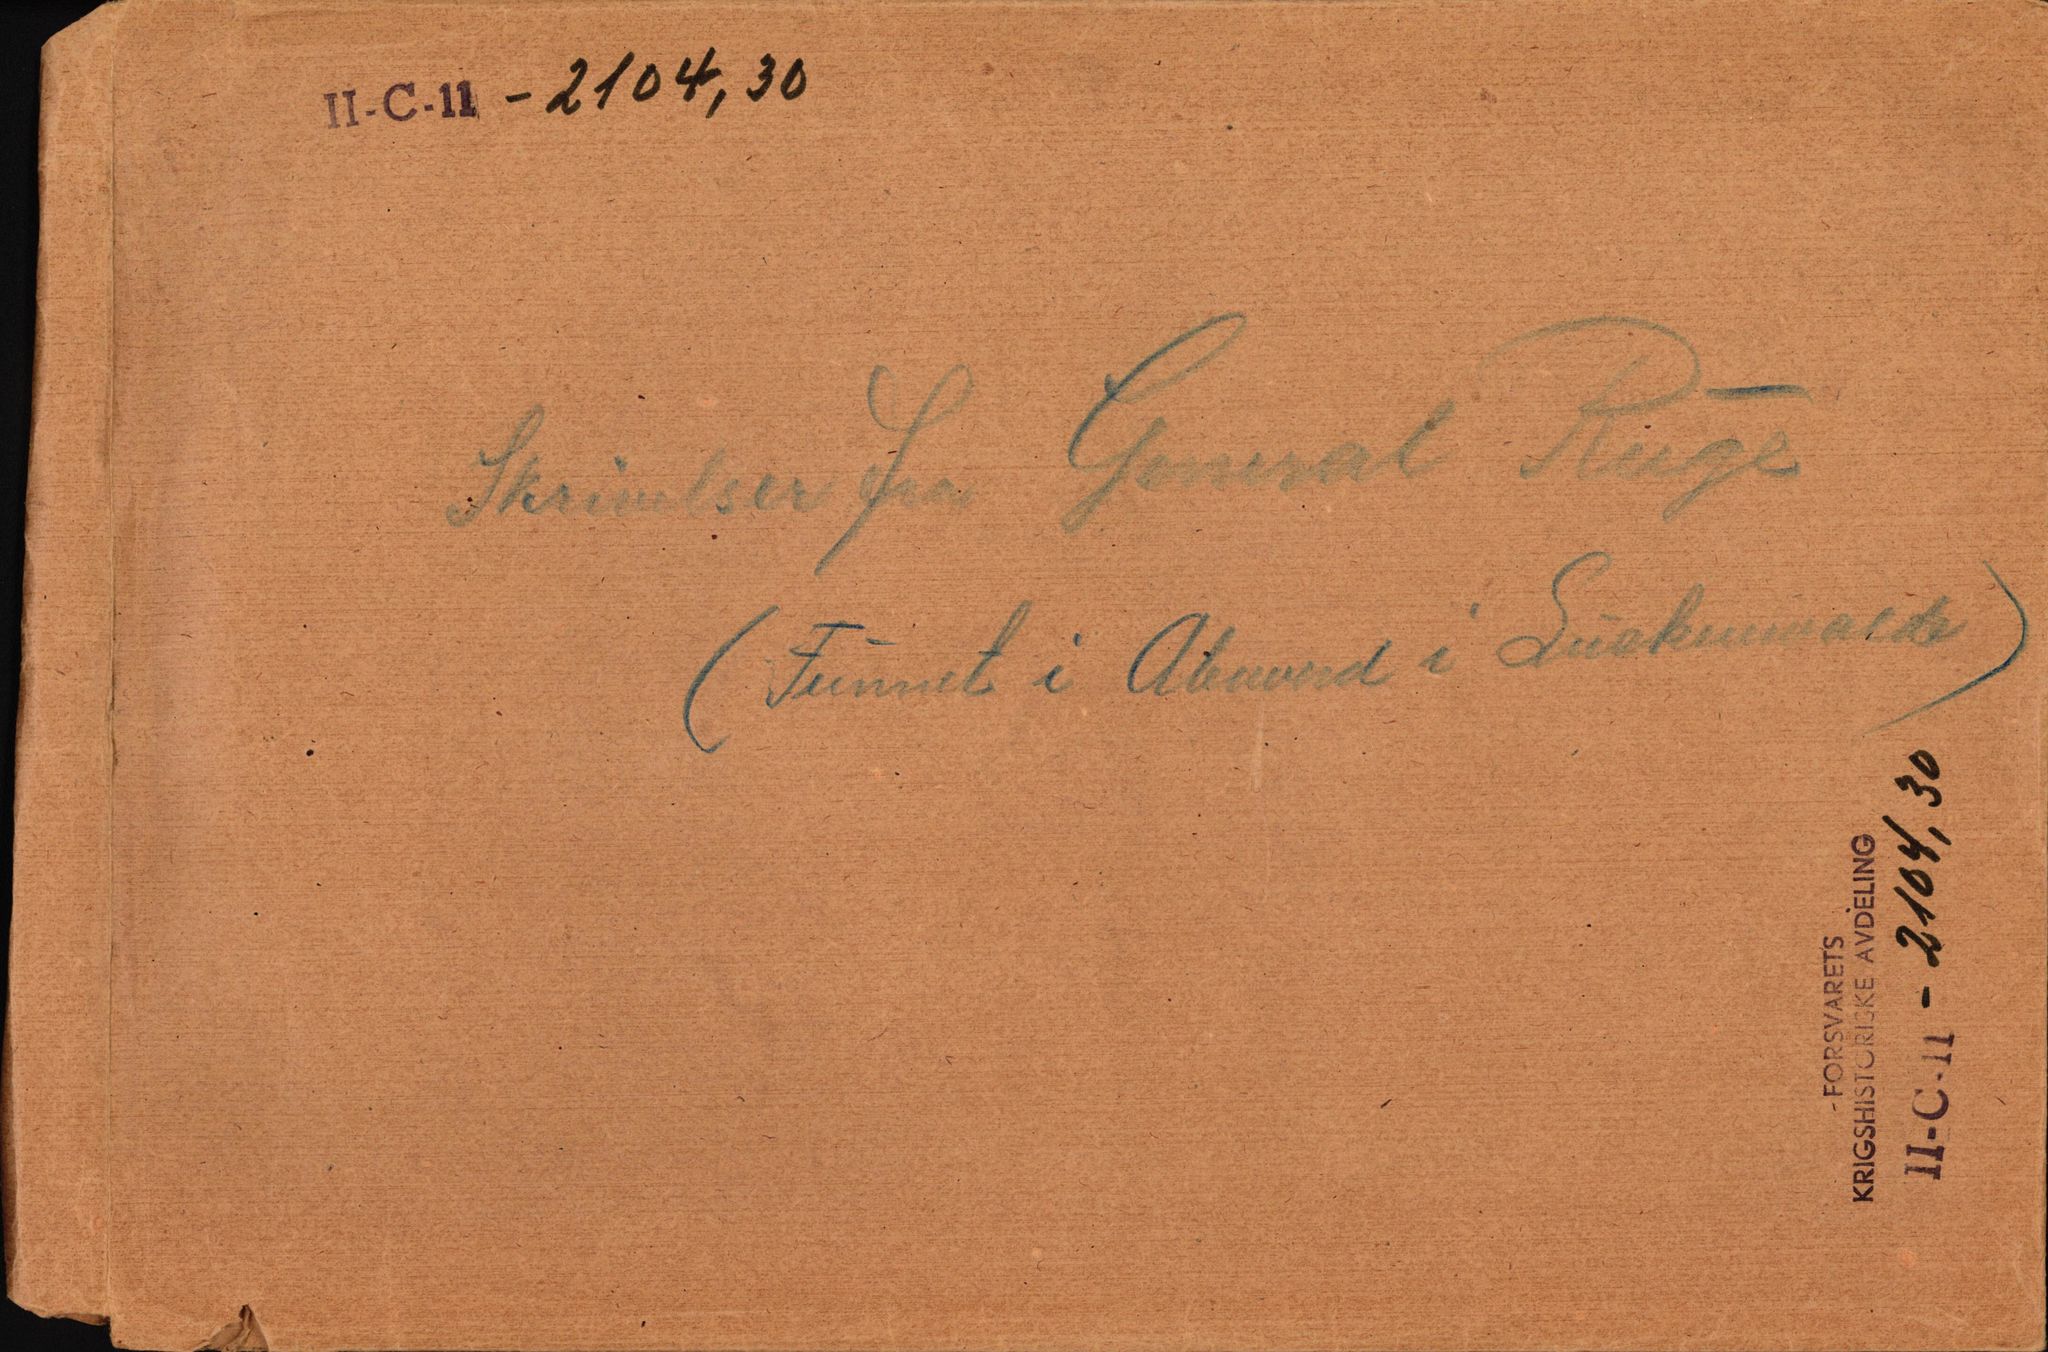 II-C-11 - 2104,30
Skrivelser fra General Ruge
(Funnet i Abwerd i Luckenwalde)
- FORSVARETS
KRIGSHISTORISKE AVDELING
II-C-11 - 2104,30